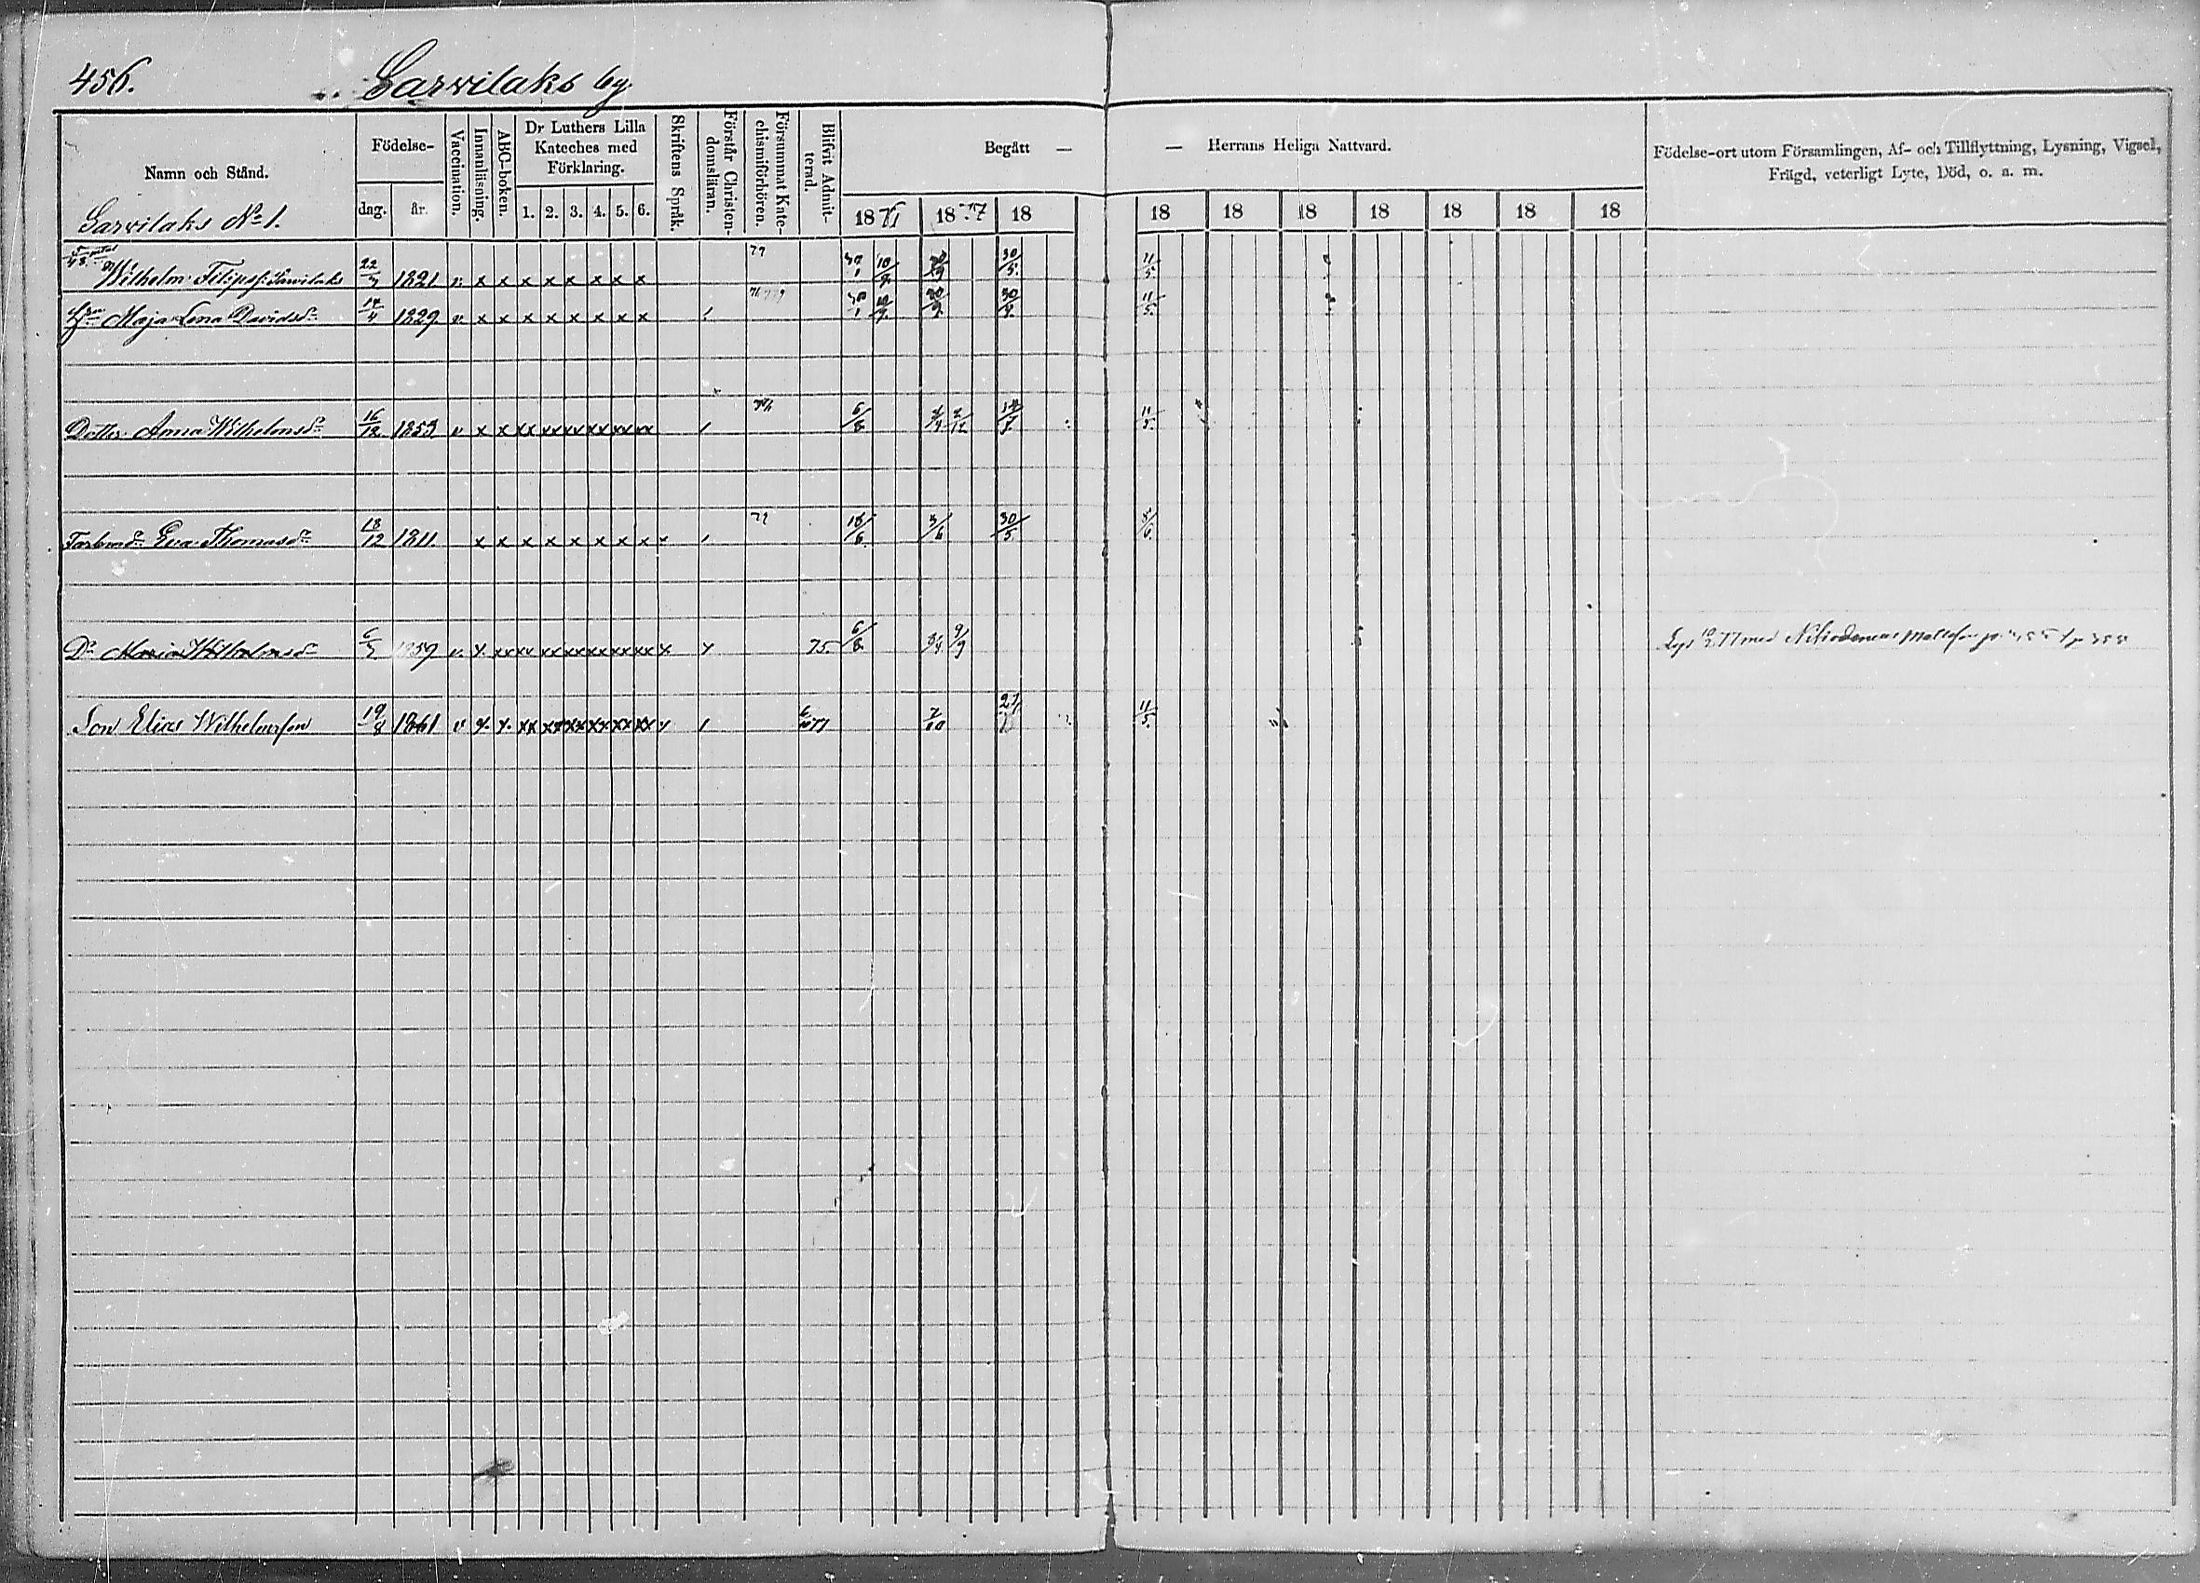 456. Sarvilaks by
Namn och Stånd.
Födelse-
dag. år.
Vaccination.
Innanläsning.
ABC-boken.
Dr Luthers Lilla Kateches med Förklaring.
1. 2. 3. 4. 5. 6.
Skriftens Språk.
Förstår Christendomsläran.
Försummat Katechismiförhören.
Blifvit Admitterad.
Begått — — Herrans Heliga Nattvard.
18 76 18 77 18 18 18 18 18 18 18 18
Födelse-ort utom Församlingen, Af- och Tillflyttning, Lysning, Vigsel,
Frägd, veterligt Lyte, Död, o. a. m.
Sarvilaks No 1.
Wilhelm Filipsf. Sarvilaks 1821 v. x x x x x x x x 30/5 11/5
Hru Maja Lena Davidsdr 14/4 1829 v. x x x x x x x x 11/5
Dotter Anna Wilhelmsdr 16/12 1853 v x x xx xx xx xx xx xx 6/6 11/5
Eva Thomasdr 18/12 1811 x x x x x x x x x 18/6 3/6 30/5 8/6
Dr Maria Wilhelmsdr 1859 v. x. xx xx xx xx xx xx xx x x 75. 6/6 9/9 77 med Nikodemus
Son Elias Wilhelmsson 19/8 1861 v x. x. xx xx xx xx xx xx x 77 7/10 11/5